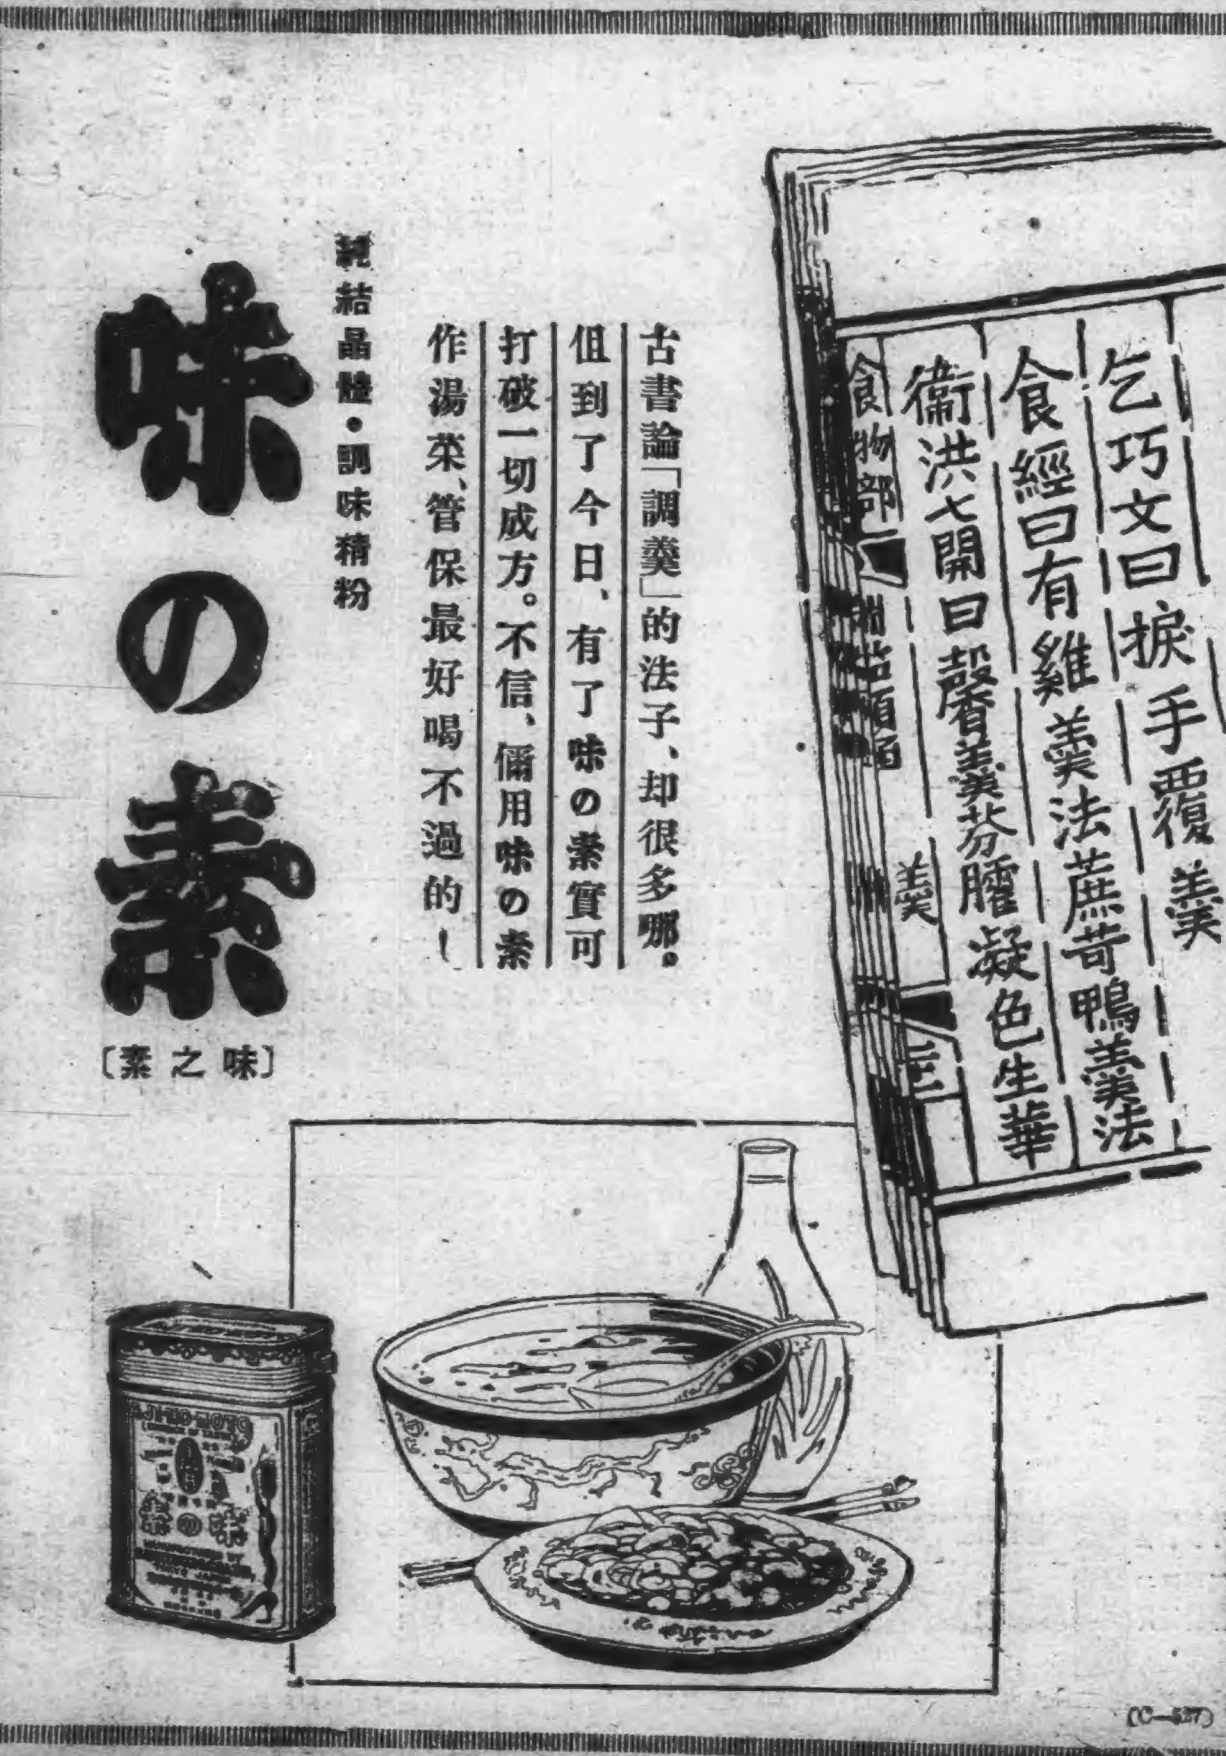 乞巧文曰捩手覆羹
食經曰有雞羹法蔗苛鴨羹法
衞洪七開曰馨羹芬臛凝色生華
食物部
羹
三
古書論「調羹」的法子、却很多哪。
但到了今日、有了味の素實可
打破一切成方。不信、儞用味の素
作湯菜、管保最好喝不過的！
純結晶體・調味精粉
味の素
〔素之味〕
AJI-NO-MOTO
(C—527)